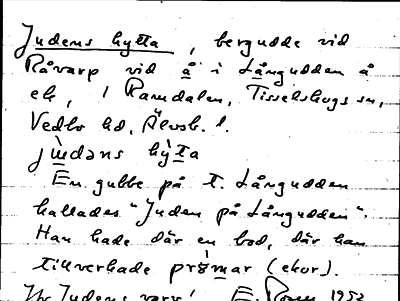 Judens hytta, bergudde vid
Råvarp vid å i Långudden å
ek, i Ramdalen, Tisselskogs sn,
Vedbo hd, Älvsb. l.
En gubbe på t. Långudden
kallades "Juden på Långudden".
Han hade där en bod, där han
tillverkade prämar (ekor).
Jfr Judens varv! E. 1952